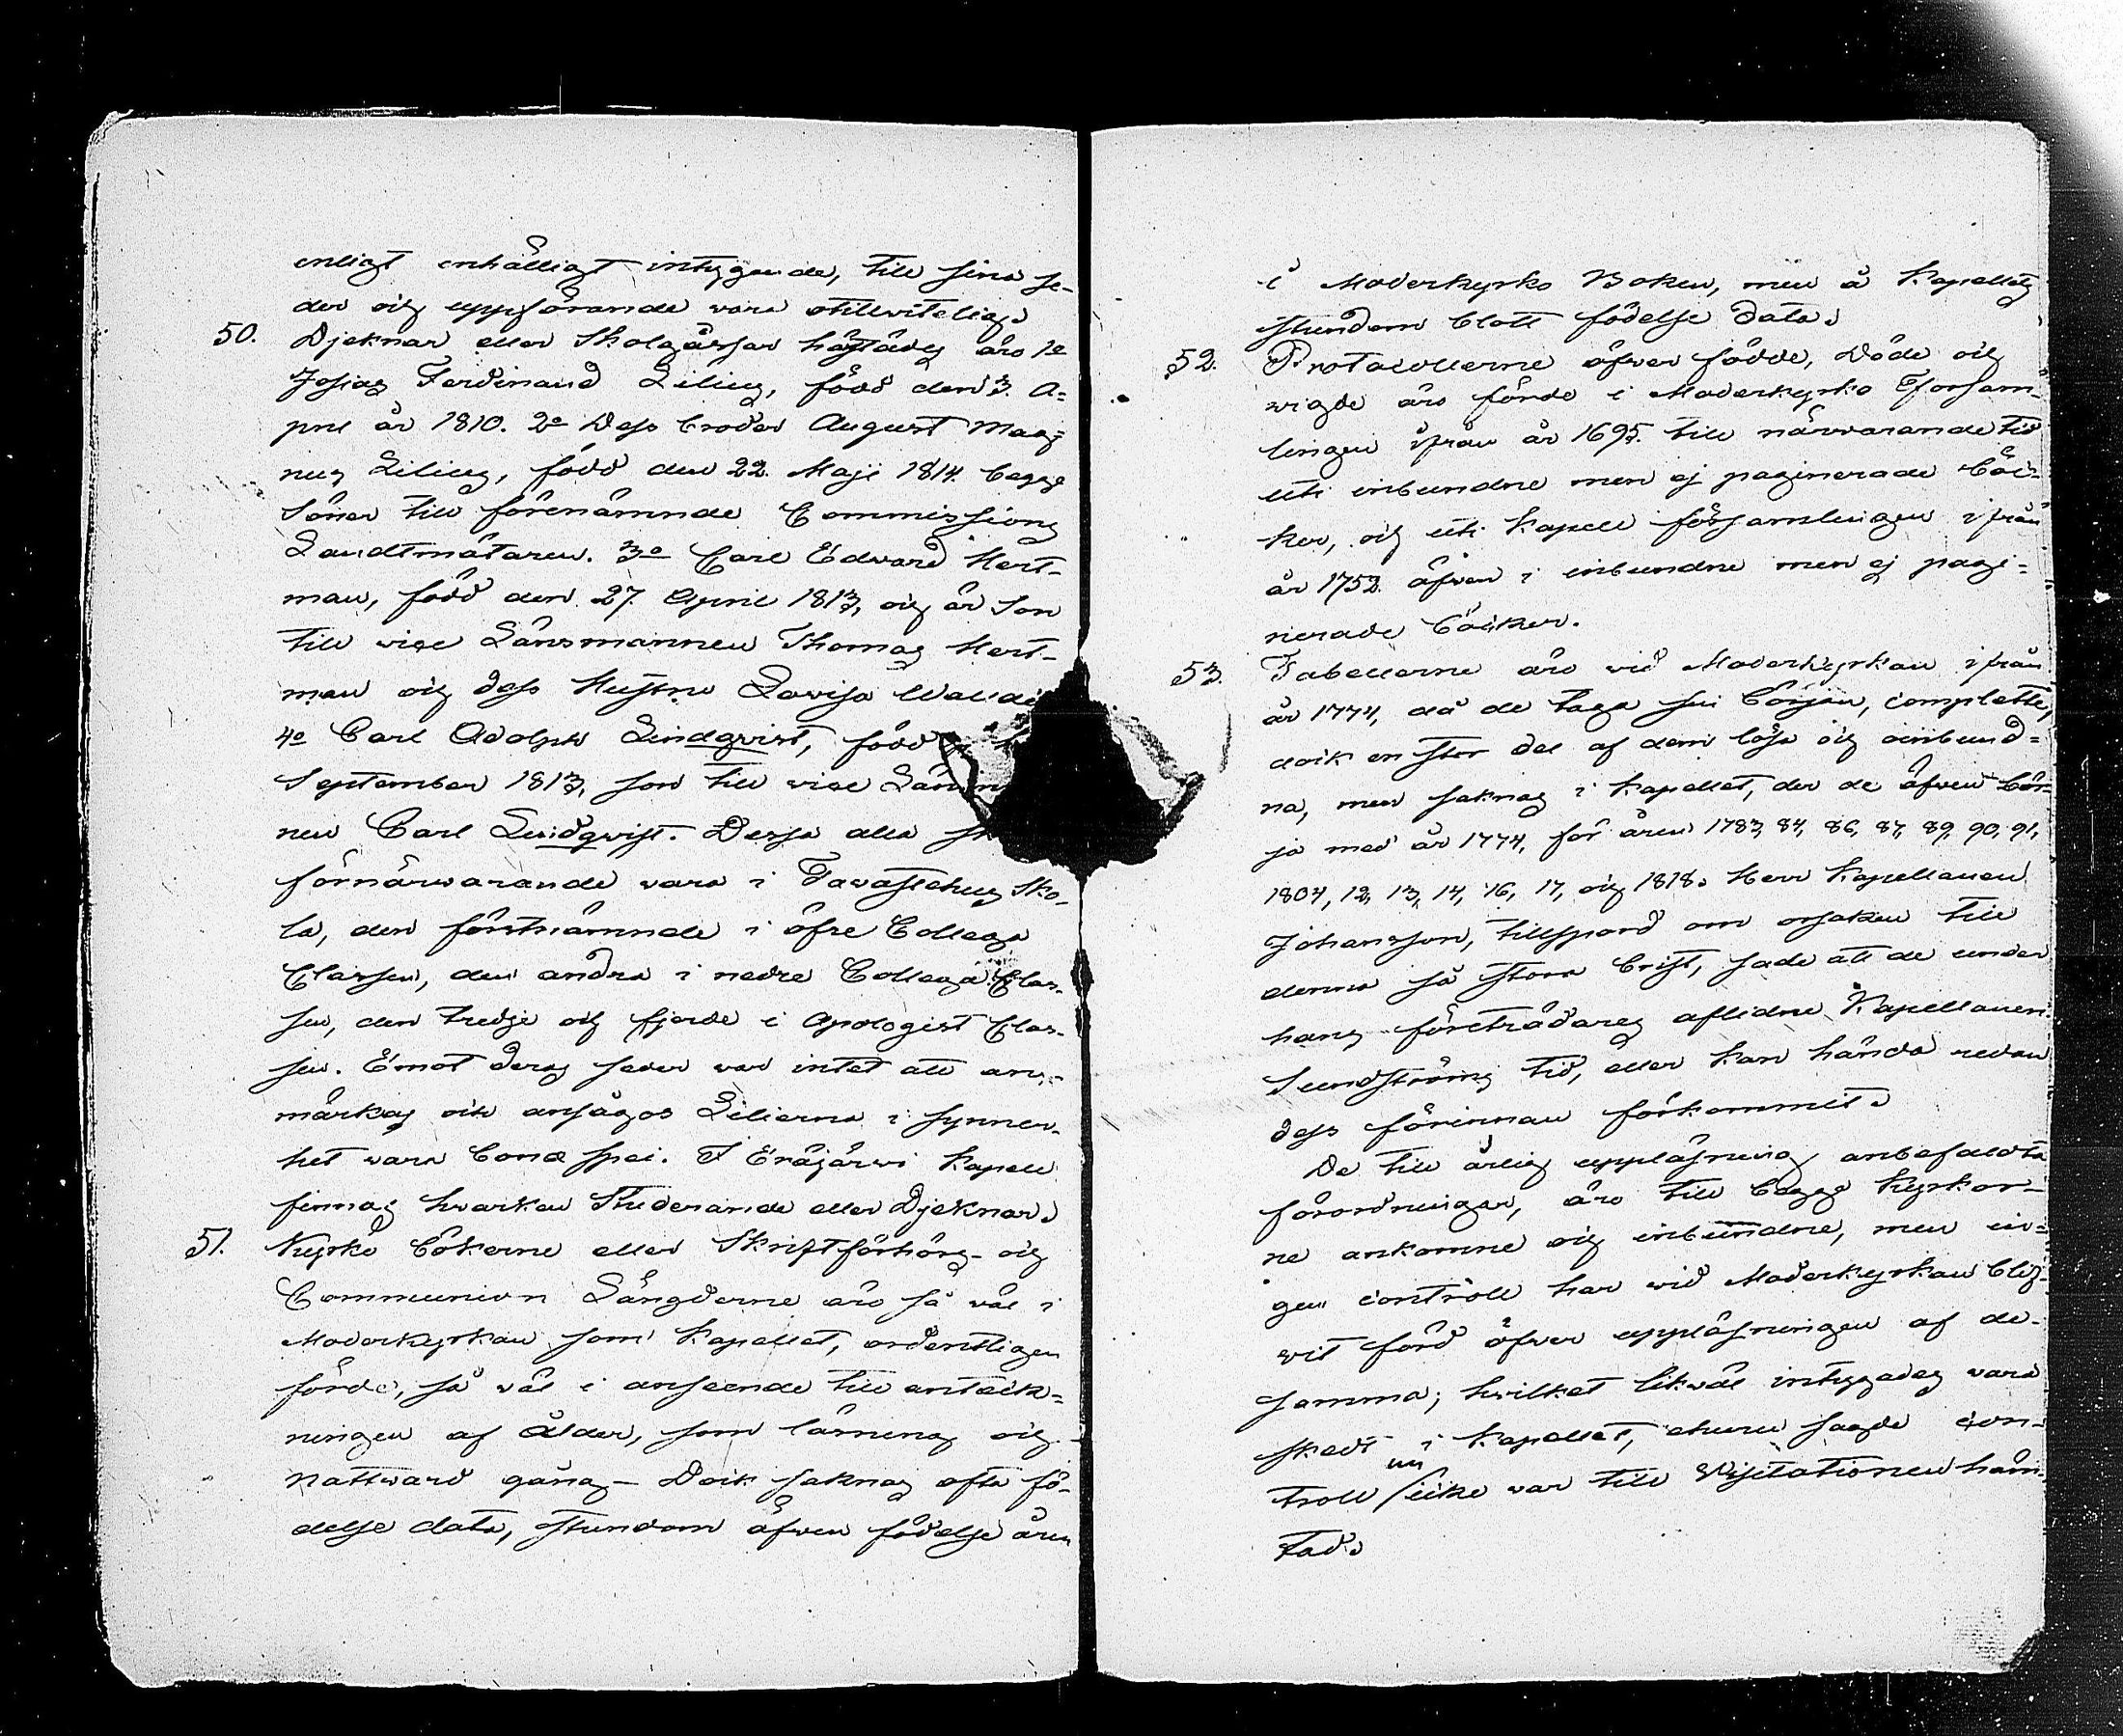 enligt enhälligt intygande, till sina se-
der och uppförande vara otilwitelig.
50. Djeknar eller Skolgässar härstädes äro 1o
Josias Ferdinand Lilius, född den 3. A=
pril år 1810. 2o Dess broder August Mag-
nus Lilius, född den 22. Maji 1814. bägge
Söner till förenämnde Commissions
Landtmätaren. 3o Carl Edward Hert-
man, född den 27. April 1813, och är Son
till vice Länsmannen Thomas Hert-
man och dess Hustru Lovisa
4o Carl Adolph Lindqvist, född
September 1813, son till vice Län
nen Carl Lindqvist. Dessa alla
förnärwarande vara i Tavastehus Sko-
la, den förstnämnde i öfre Collega
Classen, den andra i nedre Collega Clas-
sen, den tredje och fjerde i Apologist Clas-
sen. Emot deras seder var intet att an-
märkas och ansågos Lilierna i synner-
het vara bonæ spei. I Eräjärwi Kapell
finnas hvarken Studerande eller Djeknar.
51. Kyrko böckerne eller Skriftförhörs- och
Communion Längderne äro så väl i
Moderkyrkan som Kapellet, ordentligen
förde, så väl i anseende till anteck=
ningen af Ålder, som läsning och
nattward gång – Dock saknas ofta fö-
delse data, stundom äfven födelse åren
i Moderkyrko Boken, men å Kapellets
stundom blott födelse data.
52. Protocollerne öfwer födde, döde och
wigde äro förde i Moderkyrko Försam-
lingen ifrån år 1695. till närvarande tid
uti inbundne men ej paginerade böc-
ker, och uti Kapell församlingen ifrån
år 1752. äfwen i inbundne men ej pagi=
nerade böcker.
53. Tabellerne äro wid Moderkyrkan ifrån
år 1774, då de taga sin början, complette,
dock en stor del af dem lösa och oinbund=
na, men saknas i Kapellet, der de äfwen bör-
ja med år 1774, för åren 1783, 84, 86, 87, 89, 90, 91,
1804, 12, 13, 14, 16, 17, och 1818. Herr Kapellanen
Johansson, tillspord om orsaken till
denna så stora brist, sade att de under
hans företrädares aflidne Kapellanen
Sundströms tid, eller kan hända redan
dess förinnan förkommit.
De till årlig uppläsning anbefaldta
förordningar, äro till bägge Kyrkor-
ne ankomne och inbundne, men in=
gen controll har wid Moderkyrkan blif-
vit förd öfver uppläsningen af de-
samma; hwilket likwäl intygades vara
skedt i Kapellet, ehuru sagde con-
troll nu icke var till Visitationen häm-
tad.